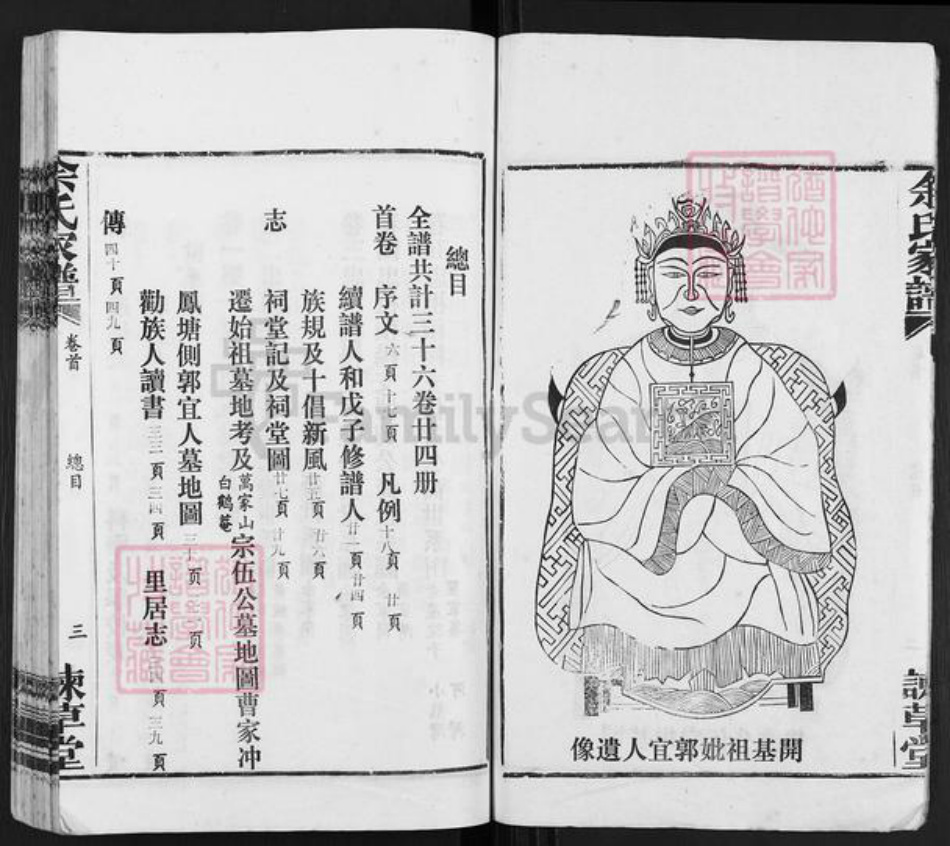 余氏家譜
諫草堂
開基祖妣郭宜人遺像
總目
全譜共計三十六卷廿四册
首卷 序文 六頁 十七頁 凡例 十八頁 廿頁
續譜人和戊子修譜人 廿一頁 廿四頁
族規及十倡新風 廿五頁 廿六頁
志 祠堂記及祠堂圖 廿七頁 廿九頁
遷始祖墓地考及萬家山白鶴菴宗伍公墓地圖曹家冲
鳳塘側郭宜人墓地圖 頁 頁
勸族人讀書 三三頁 三四頁 里居志 頁 三九頁
傳 四十頁 四九頁
余氏家譜 卷首 總目 三 諫草堂
FamilySearch